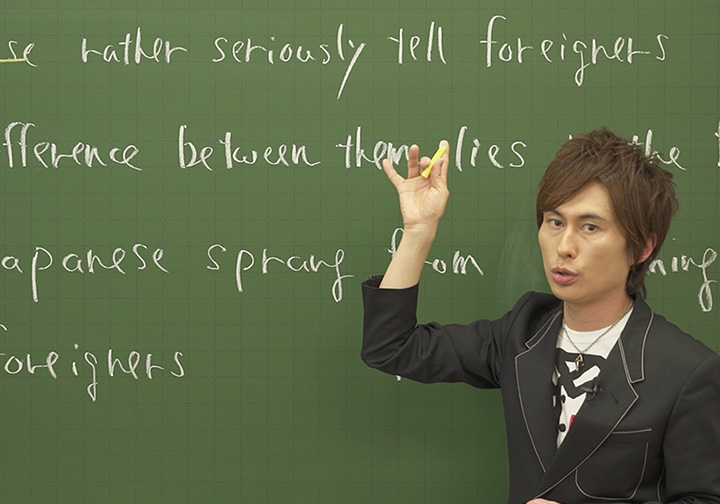 se rather seriously tell foreigners
ifference between them lies in the
apanese sprang from
foreigners